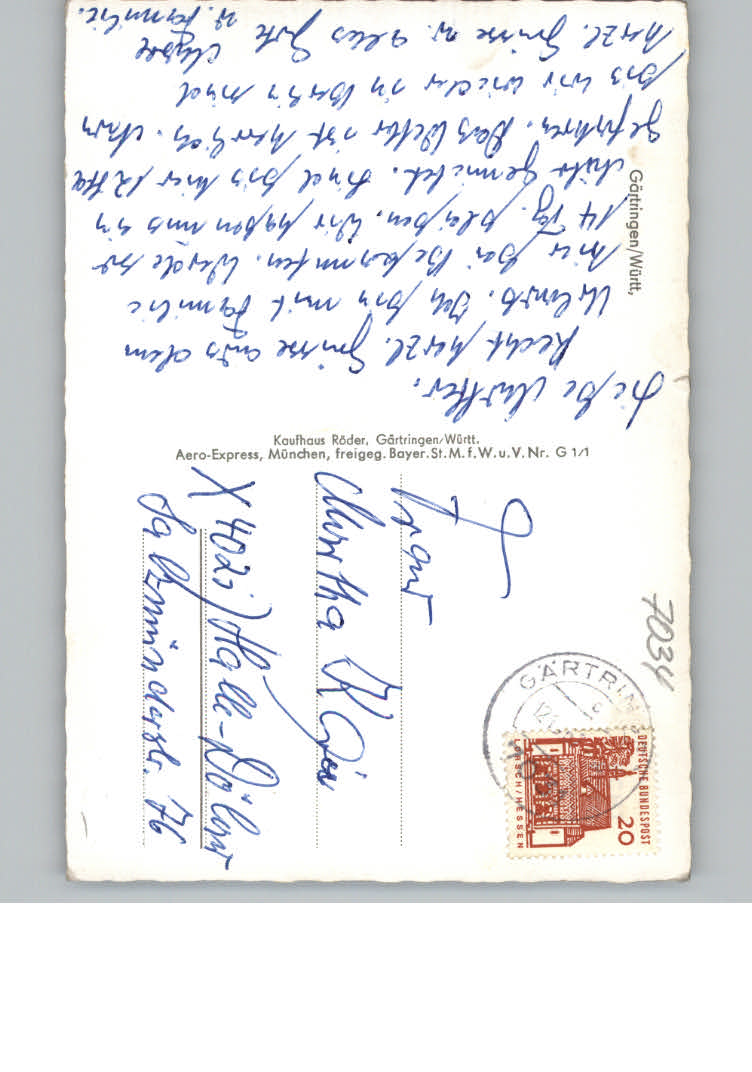 Liebe Mutter.
Recht herzl. Grüsse aus dem
Urlaub. Ich bin mit Familie
hier bei Bekannten. Werde
14 Tg. bleiben. Wir haben uns ein
Auto gemietet. Sind bis hier
gefahren. Das Wetter ist herrlich.
bis wir wieder in Berlin sind
herzl. Grüsse u. alles Gute
u. Familie.
Gärtringen/Württ.
Kaufhaus Röder, Gärtringen/Württ.
Aero-Express, München, freigeg. Bayer.St.M.f.W.u.V.Nr. G 1/1
Frau
Martha Klein
X 402 Halle-Dölau
Salzmünderstr. 76
7034
GÄRTRIN
DEUTSCHE BUNDESPOST
20
LORSCH/HESSEN